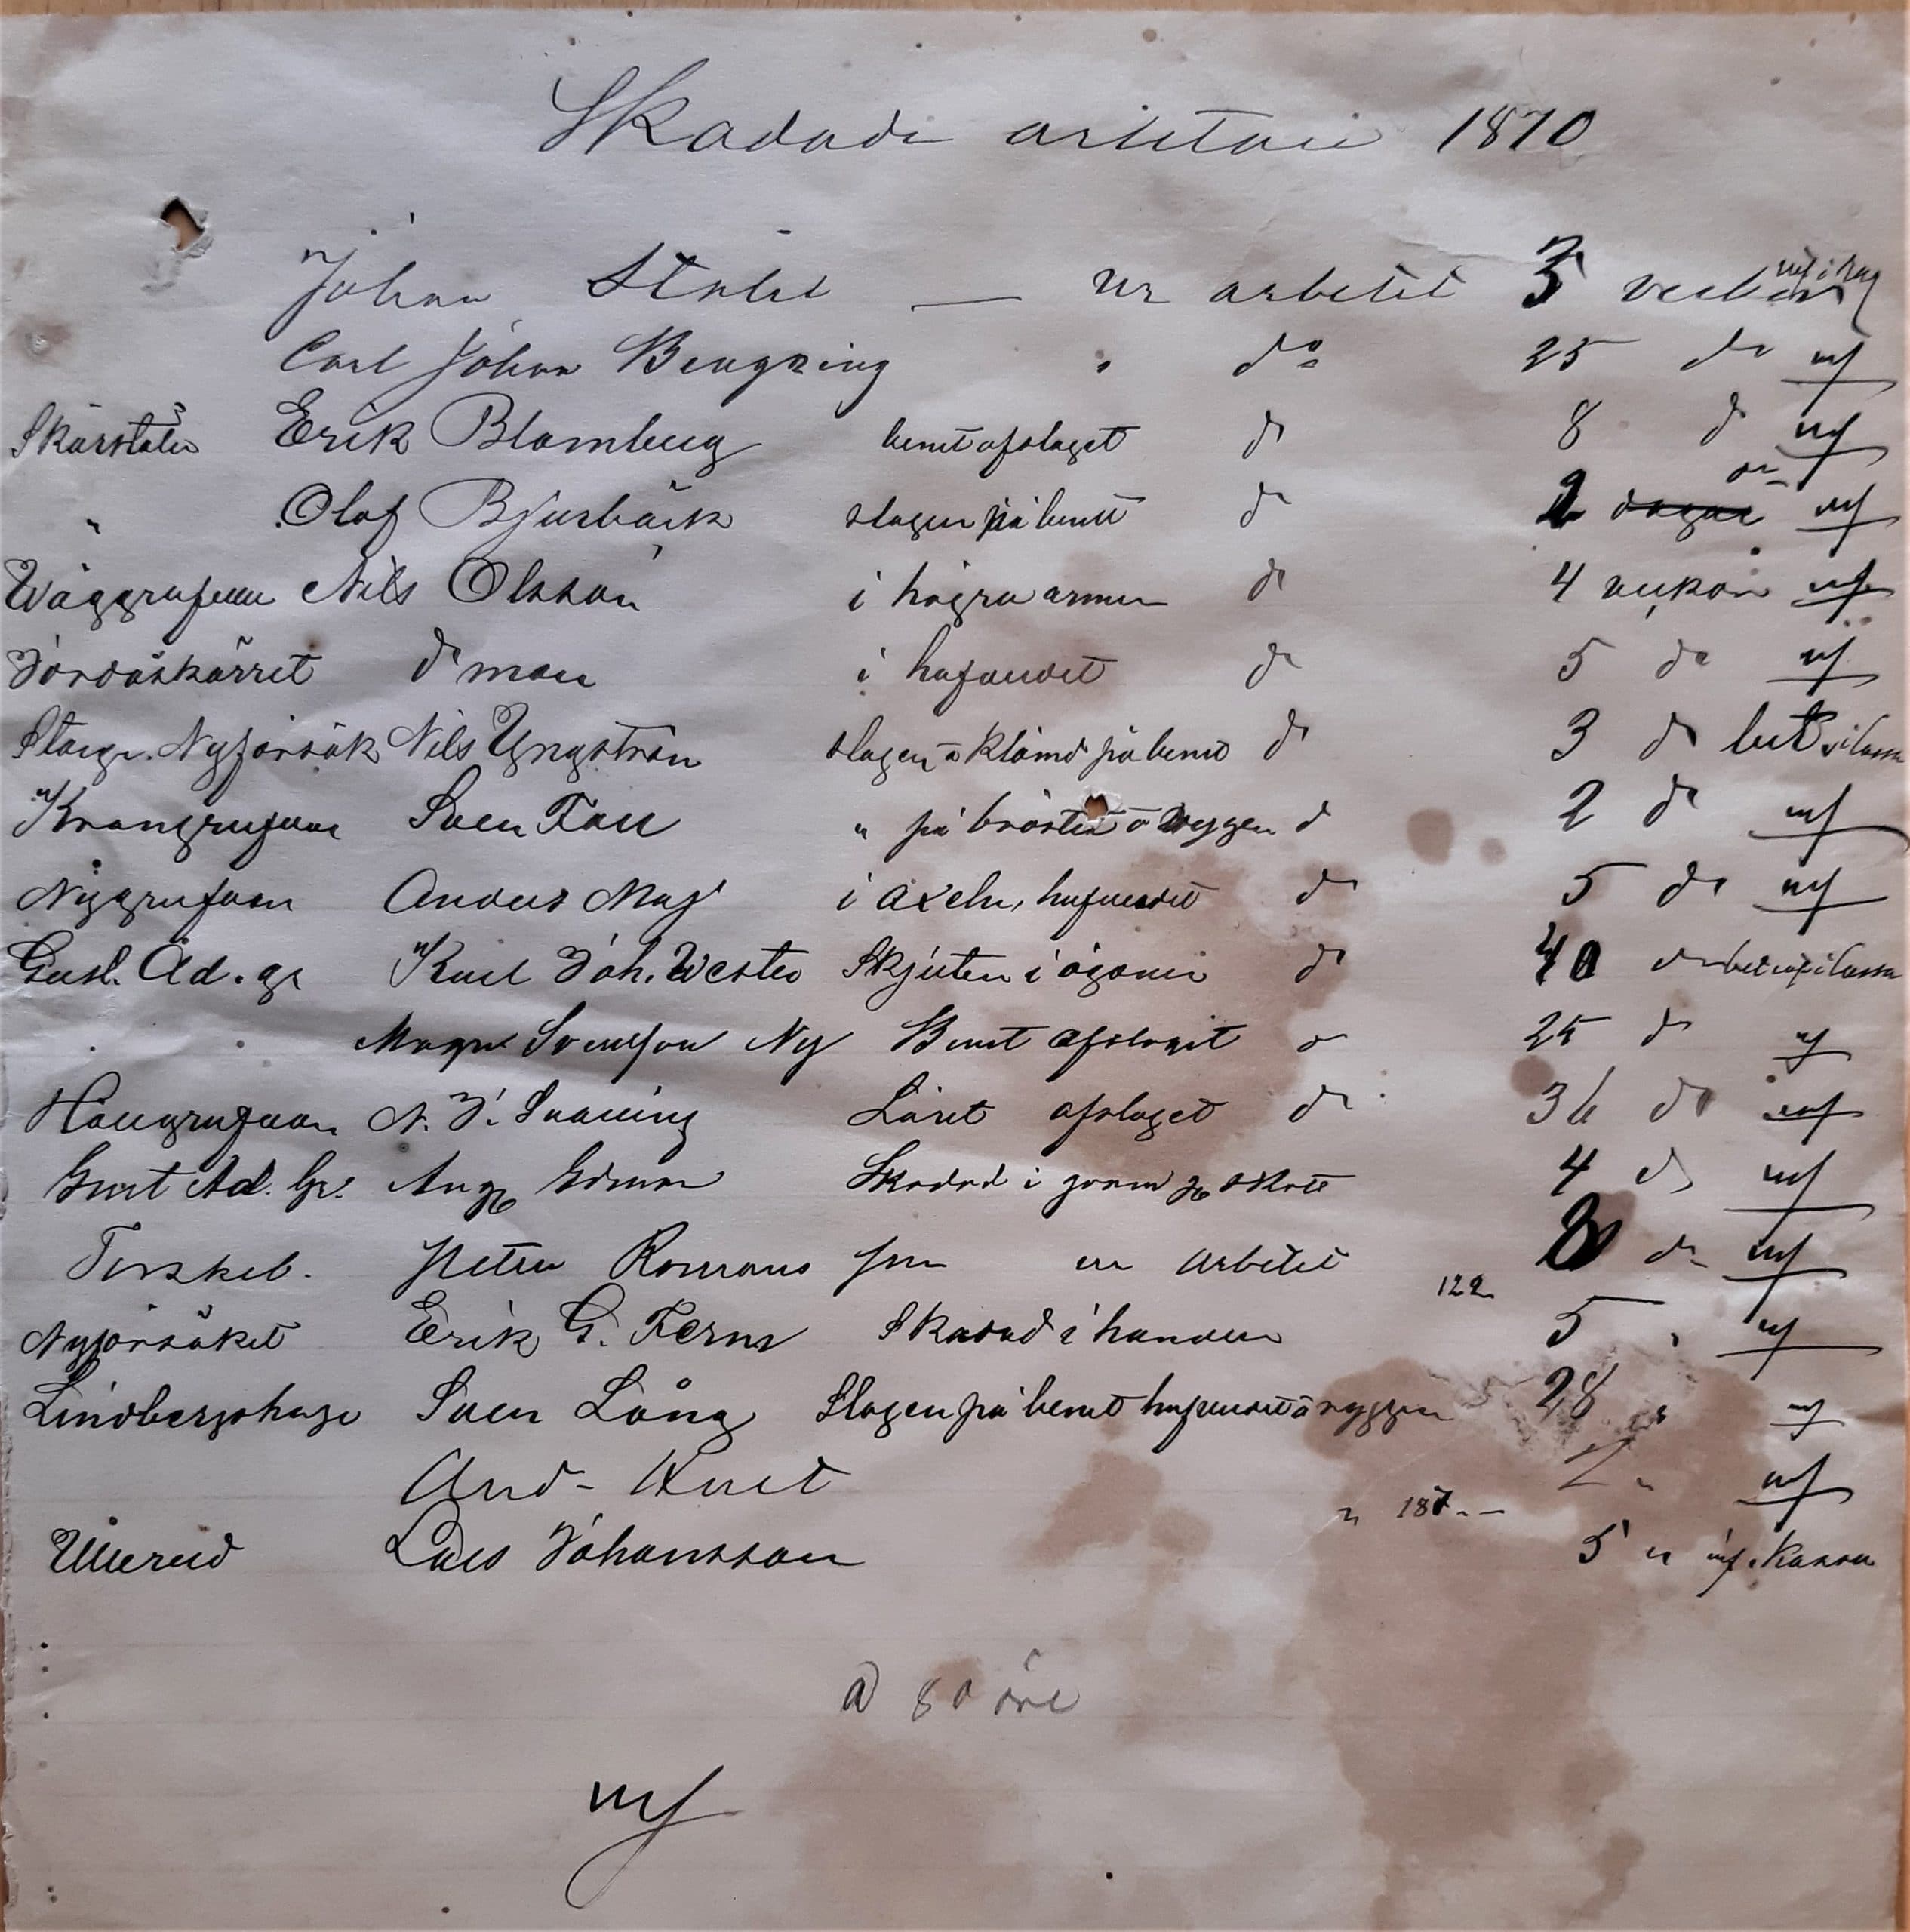 Skadade arbetare 1870
Johan Stålet — ur arbetet 3 veckor
Carl Johan Bengzing " do 25 do
Skärstöten Erik Blomberg benet afslaget do 8 do
" Olof Bjurbäck slagen på benet do 2 dagar do
Wäggrufvan Nils Olsson i högra armen do 4 veckor
Jordåskärret do man i hufvudet do 5 do
Storgr. Nyförsök Nils Yngström slagen o klämd på benet do 3 do
Krangrufvan Sven Fall " på bröstet o ryggen do 2 do
Nygrufvan Anders Maj i axeln, hufvudet do 5 do
Gust. Ad. gr Karl Joh. Wester Skjuten i ögonen do 40 do
Magn Svensson Ny Benet afslaget do 25 do
Hallgrufvan N. J. Låret afslaget do 36 do
Gust Ad. Gr. Aug Edman Skadad i skott 4 do
Torskeb. Petter Romans son ur arbetet 8 do
122
Nyförsöket Erik G. Ferm Skadad i handen 5 "
Lindbergshage Sven Lång Slagen på benet hufvudet o ryggen 28 "
And. Knet 2 "
187 -
Ullereud Lars Johansson 5 " kassa
a 80 öre